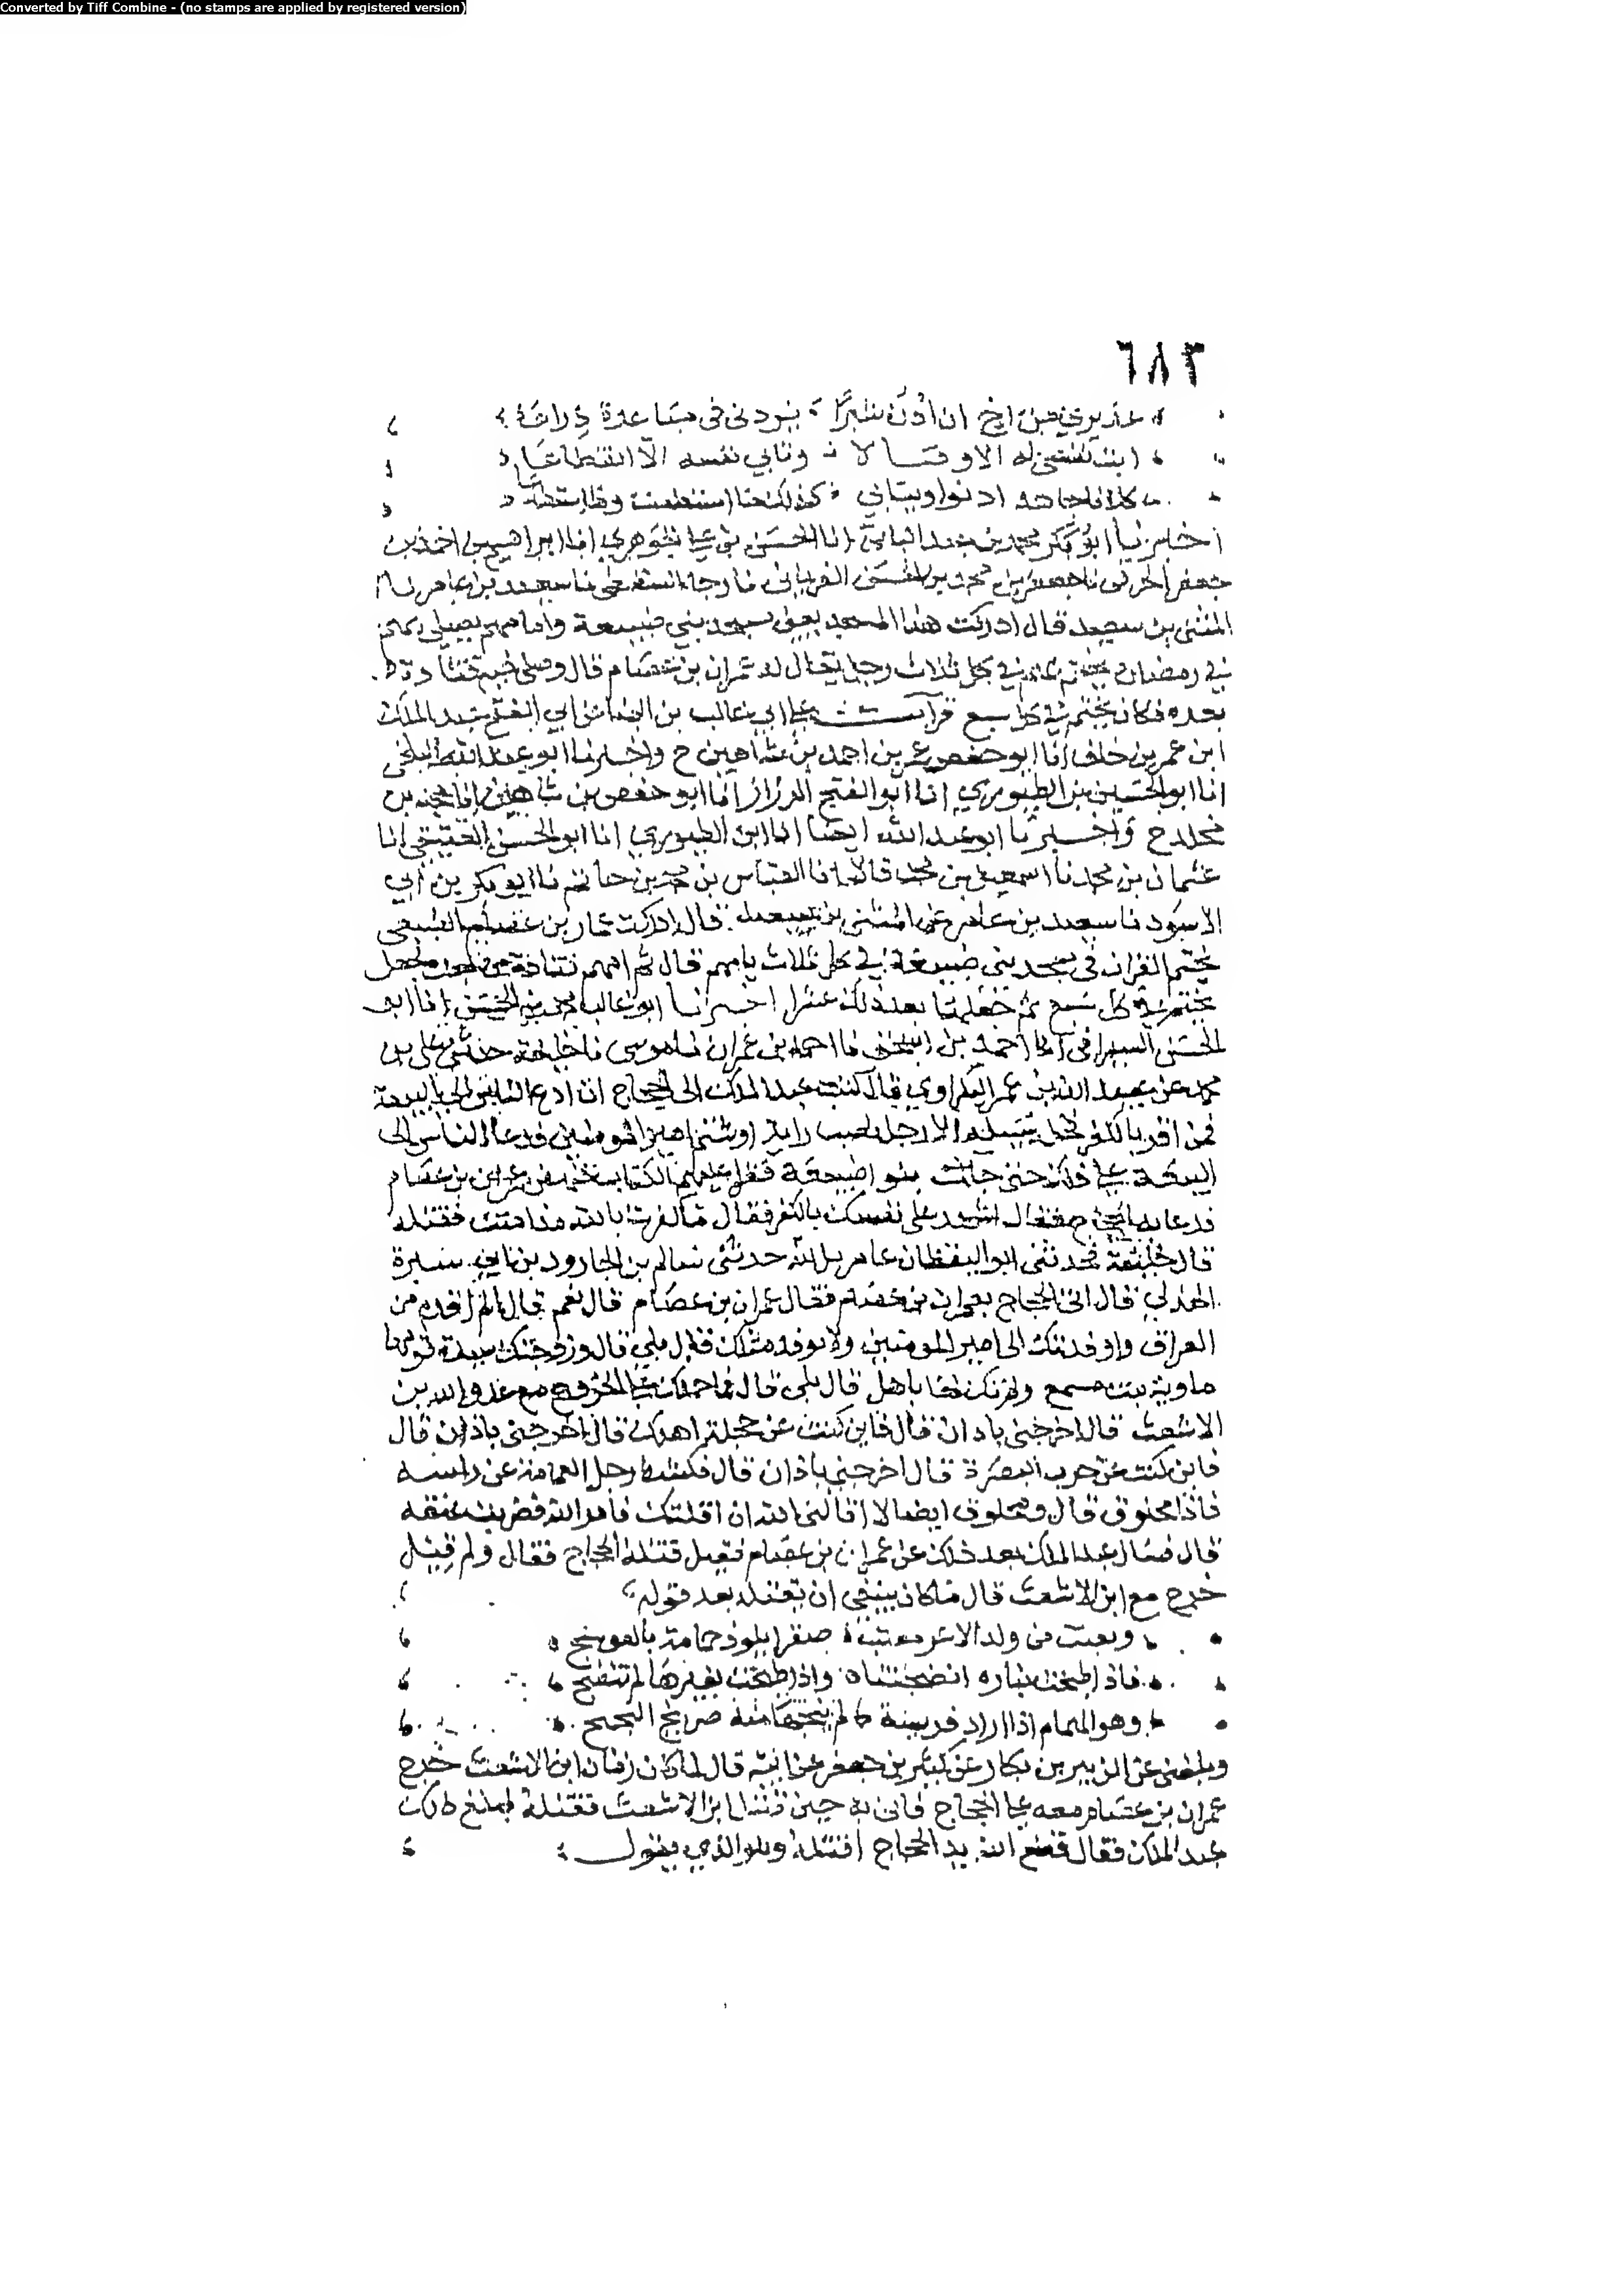 Converted by Tiff Combine - (no stamps are applied by registered version)
٦٨٣
عذيري من اخ ان ادن شبرا يزدني في مباعدة ذراعا
ابت نفسي له الا وصالا وتابي نفسه الا انقطاعا
كلانا جاهد ادنو وينأى كذلك ما استطعت وما استطاعا
اخبرنا ابو بكر محمد بن عبد الباقي انا الحسن بن علي الجوهري انا ابراهيم بن احمد بن
جعفر الخرقي نا جعفر بن محمد بن الحسن الفريابي نا رجا السقطي نا سعيد بن عامر نا
المثنى بن سعيد قال ادركت هذا المسجد يعني مسجد بني ضبيعة وامامهم يصلي بهم
في رمضان يختم في كل ثلاث رجل يقال له عمران بن عصام قال وصلى قتادة
بعده فكان يختم في كل سبع قرأت على ابي غالب بن البنا عن ابي الفتح عبد الملك
ابن عمر بن خلف انا ابو حفص عمر بن احمد بن شاهين ح واخبرنا ابو عبد الله البلخي
انا ابو الحسين بن الطيوري انا ابو الفتح الرزاز انا ابو حفص بن شاهين انا محمد بن
مخلد ح واخبرنا ابو عبد الله ايضا انا ابن الطيوري انا ابو الحسن العتيقي انا
عثمان بن محمد نا اسمعيل بن محمد قالا نا العباس بن محمد بن حاتم نا ابو بكر بن ابي
الاسود نا سعيد بن عامر عن المثنى بن سعيد قال ادركت عمار بن عصام الضبعي
يختم القران في مسجد بني ضبيعة في كل ثلاث يامهم قال ثم امهم قتادة من فجعل
يختم في كل سبع ثم بعد ذلك عشرا اخبرنا ابو غالب محمد بن الحسن انا ابو
الحسن السيرافي انا احمد بن اسحق نا احمد بن عمران نا موسى نا خليفة حدثني علي بن
محمد عن عبد الله بن عمر البكراوي قال كتب عبد الملك الى الحجاج ان ادع الناس الى البيعة
فمن اقر بالكفر فخل سبيله الا رجل نصب راية او شتم امير المومنين فدعا الناس الى
البيعة على ذلك حتى جات بنو ضبيعة فقرا عليهم الكتاب عمران بن عصام
فدعا به الحجاج فقال اشهد على نفسك بالكفر فقال ما كفرت بالله منذ امنت فقتله
قال خليفة فحدثني ابو اليقظان عامر حدثني سالم بن الجارود بن ابي سبرة
الهذلي قال اتى الحجاج بعمران بن عصام فقال عمران بن عصام قال نعم قال الم اقدم من
العراق واوفدتك الى امير المومنين ولا يوفد مثلك قال بلى قال وزوجتك سيدة قومها
ماوية بنت مسمع ولم تكن لها باهل قال بلى قال فما حملك على الخروج مع عدو الله بن
الاشعث قال اخرجني باذان قال فاين كنت عن حجلة اهلك قال اخرجني باذان قال
فاين كنت عن حرب البصرة قال اخرجني باذان قال فكشط رجل العمامة عن راسه
فاذا محلوق قال ومحلوق ايضا لا اقالني الله ان اقلتك فامر به فضربت عنقه
قال فسال عبد الملك بعد ذلك عن عمران بن عصام فقيل قتله الحجاج فقال ولم قيل
خرج مع ابن الاشعث قال ما كان ينبغي ان يقتله بعد قوله
وبعثت من ولد الاغر معتب صقرا يلوذ حمامة بالعوسج
فاذا طبخت بناره انضجتها واذا طبخت بغيرها لم تنضج
وهو الهمام اذا اراد فريسة لم ينجها منه صريخ الهجهج
وبلغني عن الزبير بن بكار عن كثير بن جعفر عن ابيه قال لما كان زمان ابن الاشعث خرج
عمران بن عصام معه على الحجاج فاتي به حين قتل ابن الاشعث فقتله فبلغ ذلك
عبد الملك فقال قطع الله يد الحجاج اقتله وهو الذي يقول